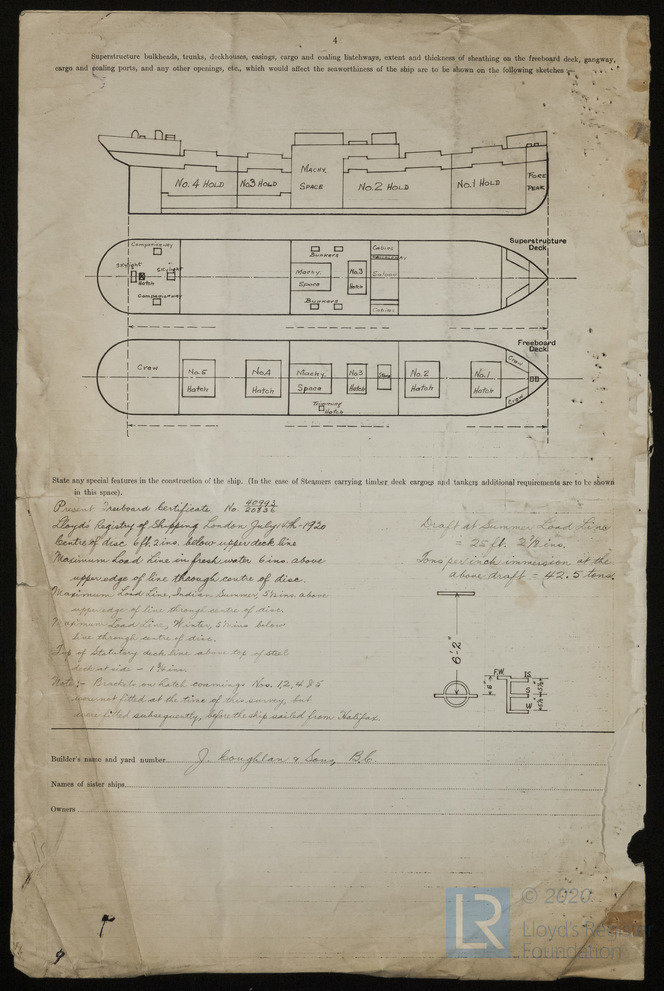 4
Superstructure bulkheads, trunks, deckhouses, casings, cargo and coaling hatchways, extent and thickness of sheathing on the freeboard deck, gangway,
cargo and coaling ports, and any other openings, etc., which would affect the seaworthiness of the ship are to be shown on the following sketches :—
No. 4 HOLD
No 3 HOLD
MACHY. SPACE
No. 2 HOLD
No. 1 HOLD
FORE PEAK
Companionway
Skylight
Hatch
Skylight
Companionway
Bunkers
Machy. Space
No. 3 Hatch
Bunkers
Cabins
Saloon
Cabins
Superstructure Deck
Crew
No. 5 Hatch
No. 4 Hatch
Machy. Space
No. 3 Hatch
Trimming Hatch
No. 2 Hatch
No. 1 Hatch
Crew
Crew
Freeboard Deck
State any special features in the construction of the ship. (In the case of Steamers carrying timber deck cargoes and tankers additional requirements are to be shown
in this space).
Present Freeboard Certificate No.
Lloyd's Registry of Shipping London July 16th-1920
Centre of disc 6 ft. 2 ins. below upper deck line
Maximum Load Line in fresh water 6 ins. above
upper edge of line through centre of disc.
Maximum Load Line, Indian Summer, 5½ ins. above
upper edge of line through centre of disc.
Maximum Load Line, Winter, 5½ ins below
line through centre of disc.
Top of Statutory deck line above top of steel
deck at side –
Note:– Brackets on hatch coamings Nos. 1, 2, 4 & 5
were not fitted at the time of this survey, but
were fitted subsequently, before the ship sailed from Halifax.
Draft at Summer Load Line
= 25 ft.
Tons per inch immersion at the
above draft = 42.5 tons.
6'-2"
F.W.
6"
I.S.
S
W
5½"
5½"
Builder's name and yard number J. Coughlan & Sons, B.C.
Names of sister ships
Owners
LR
© 2020
Lloyd's Register
Foundation